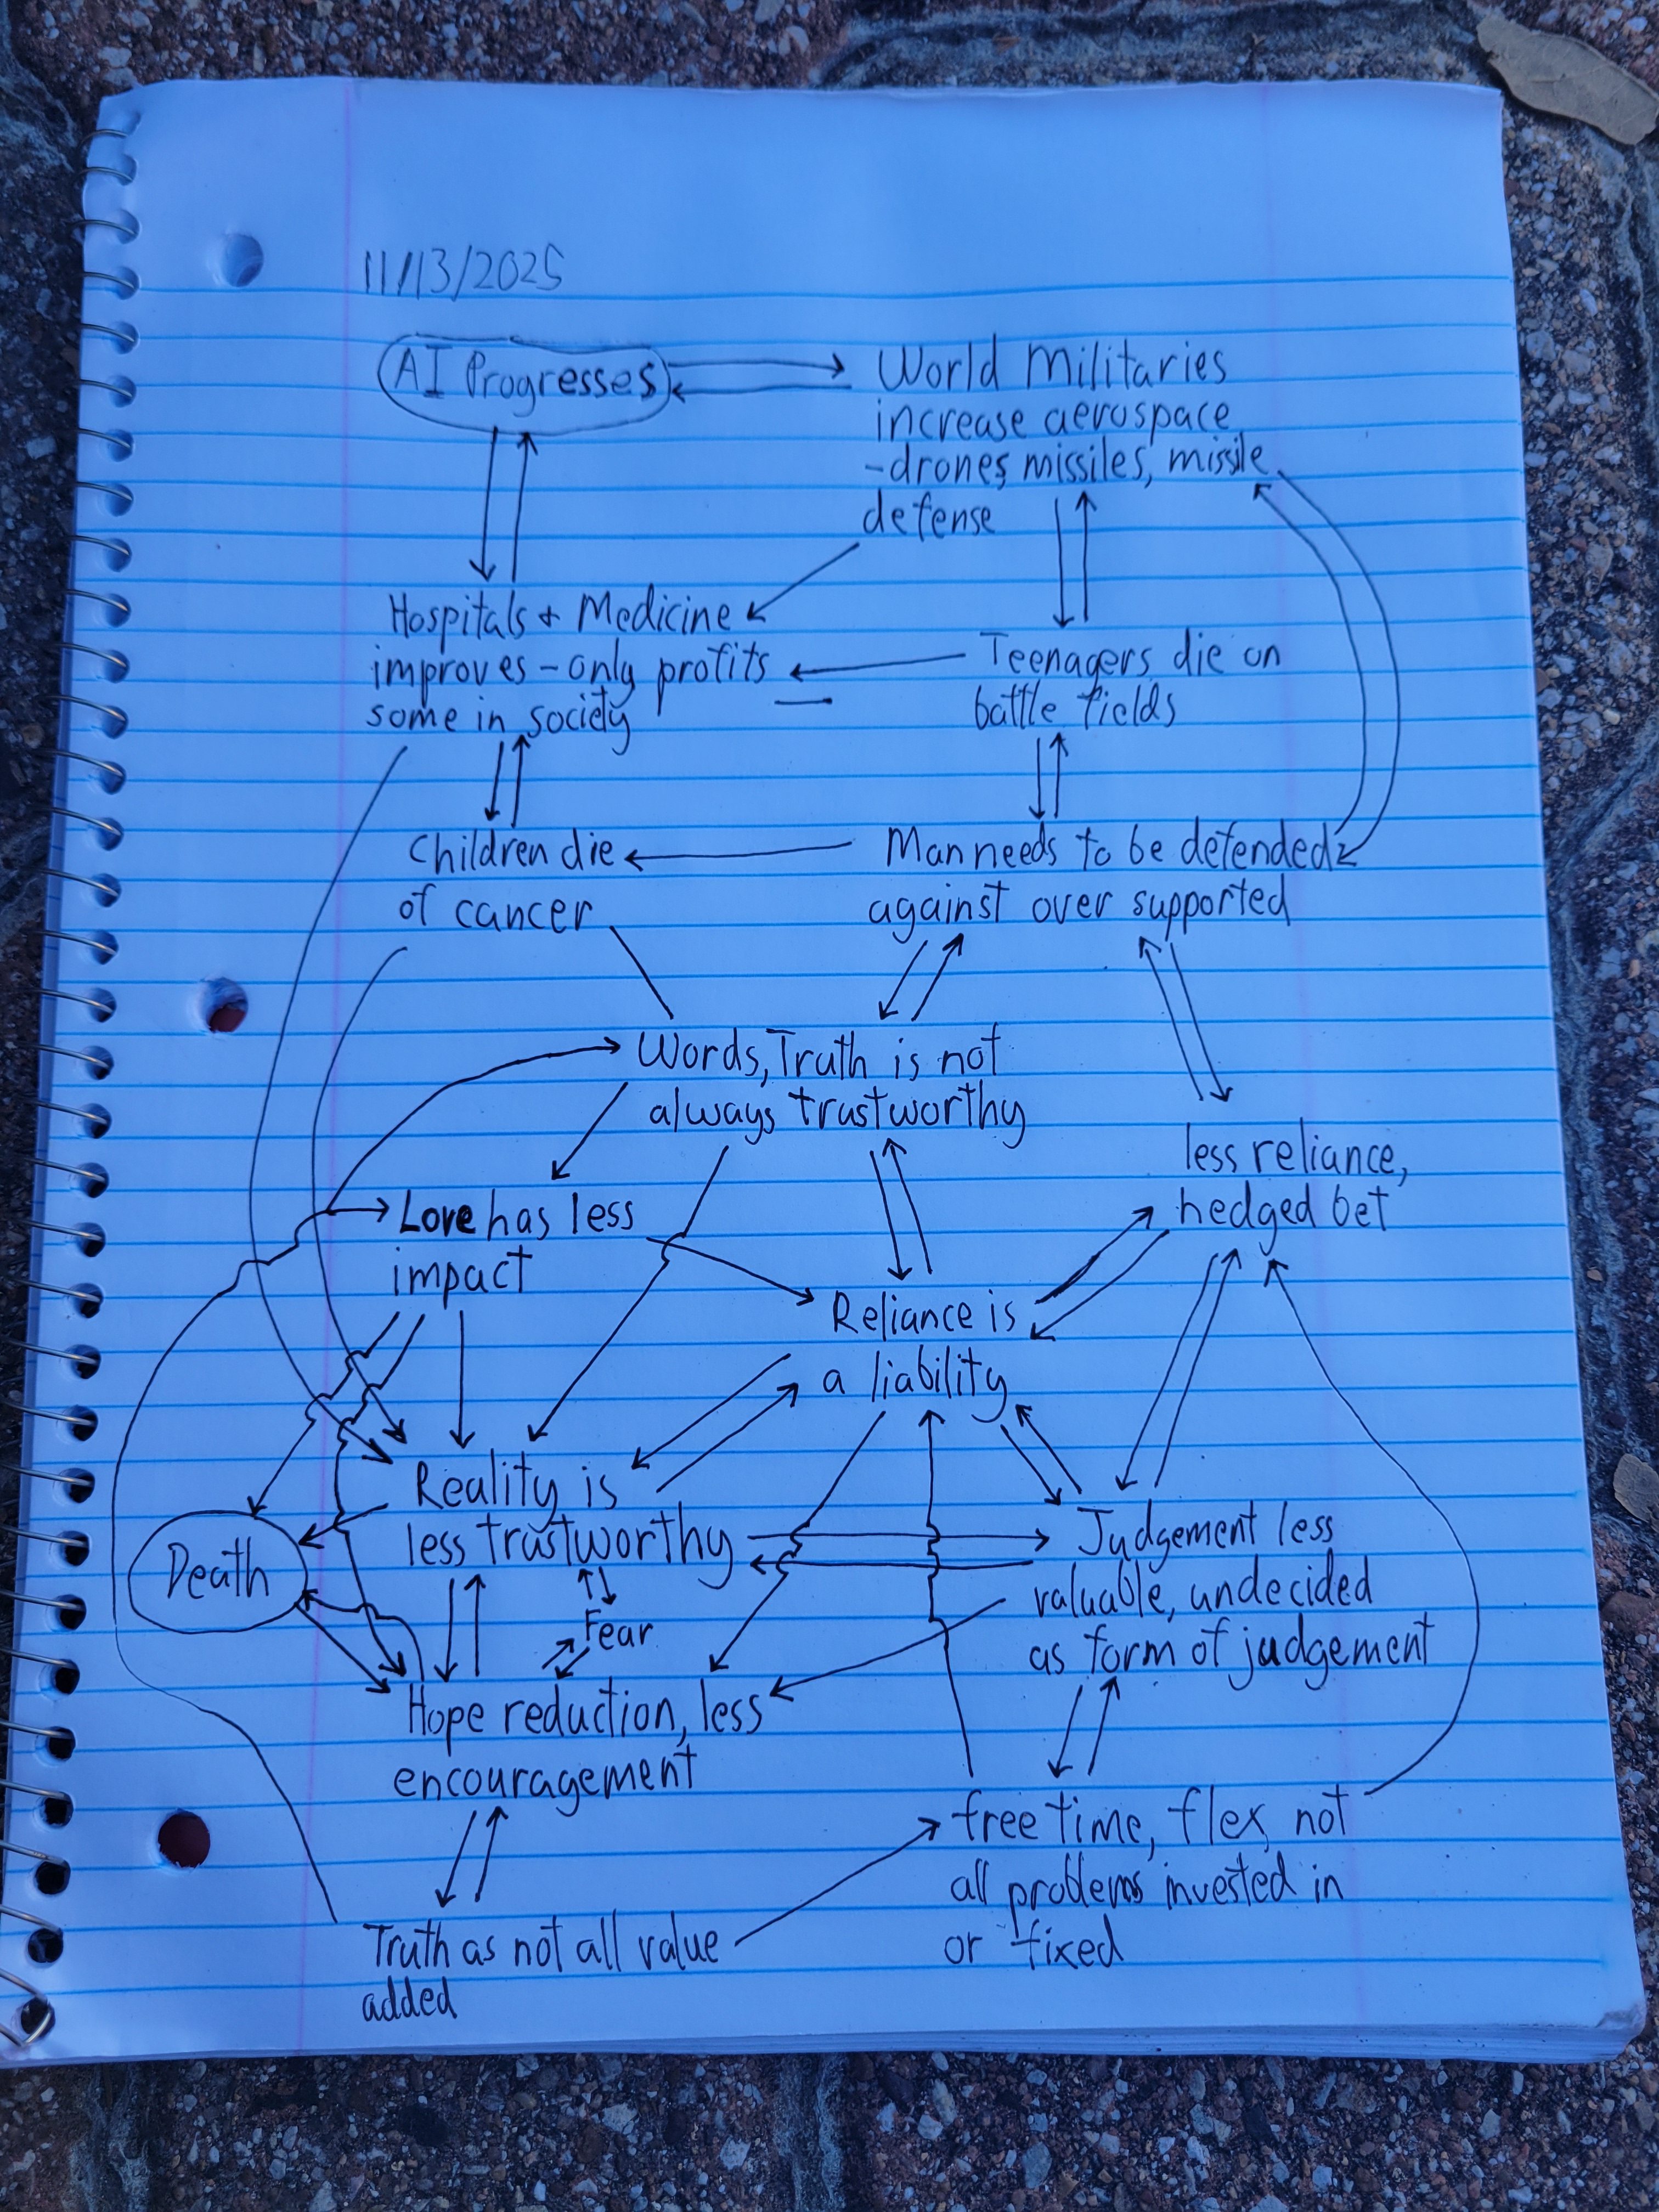 11/13/2025
AI Progresses
World Militaries
increase aerospace
-drones, missiles, missile
defense
Hospitals + Medicine
improves - only profits
some in society
Teenagers die on
battle fields
Children die
of cancer
Man needs to be defended
against over supported
Words, Truth is not
always trustworthy
less reliance,
hedged bet
Love has less
impact
Reliance is
a liability
Reality is
less trustworthy
Death
Fear
Judgement less
valuable, undecided
as form of judgement
Hope reduction, less
encouragement
free time, flex, not
all problems invested in
or fixed
Truth as not all value
added